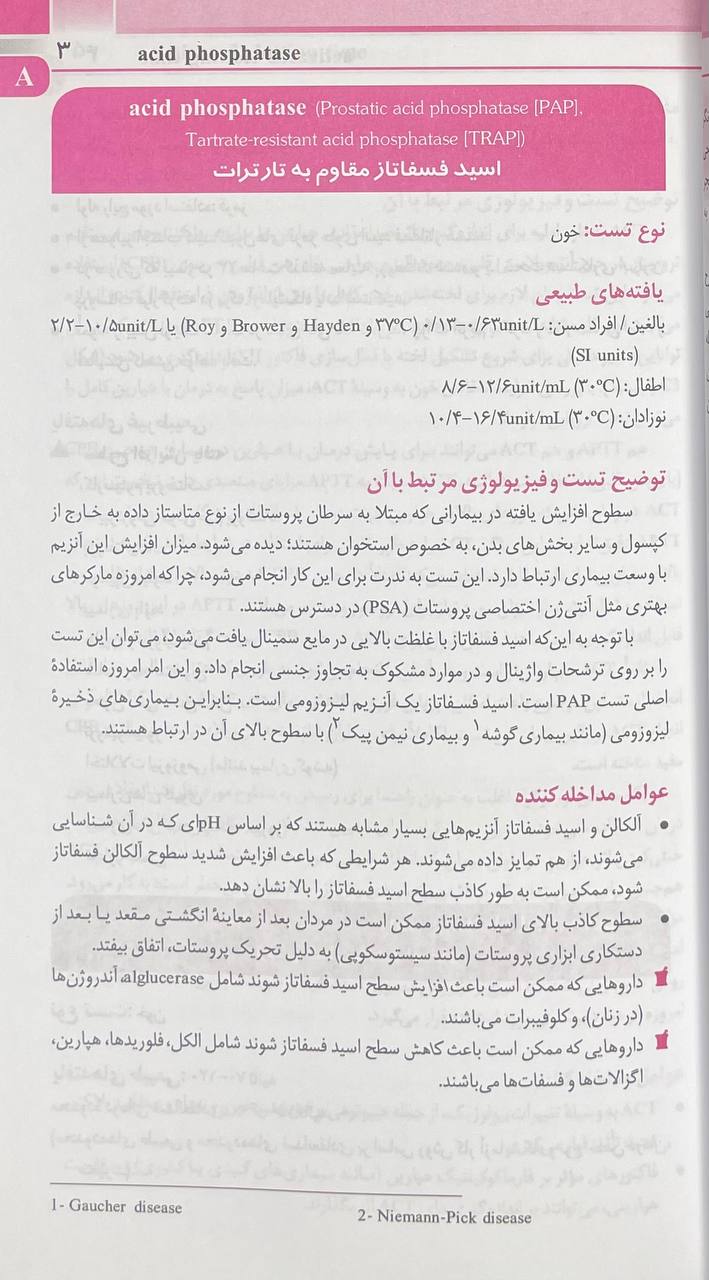 ۳ acid phosphatase
A
acid phosphatase (Prostatic acid phosphatase [PAP],
Tartrate-resistant acid phosphatase [TRAP])
اسید فسفاتاز مقاوم به تارترات
نوع تست: خون
یافته‌های طبیعی
بالغین/ افراد مسن: ۰/۱۳–۰/۶۳unit/L (۳۷°C و Hayden و Brower و Roy) یا ۲/۲–۱۰/۵unit/L
(SI units)
اطفال: (۳۰°C) ۸/۶–۱۲/۶unit/mL
نوزادان: (۳۰°C) ۱۰/۴–۱۶/۴unit/mL
توضیح تست و فیزیولوژی مرتبط با آن
سطوح افزایش یافته در بیمارانی که مبتلا به سرطان پروستات از نوع متاستاز داده به خارج از
کپسول و سایر بخش‌های بدن، به خصوص استخوان هستند؛ دیده می‌شود. میزان افزایش این آنزیم
با وسعت بیماری ارتباط دارد. این تست به ندرت برای این کار انجام می‌شود، چرا که امروزه مارکرهای
بهتری مثل آنتی‌ژن اختصاصی پروستات (PSA) در دسترس هستند.
با توجه به این‌که اسید فسفاتاز با غلظت بالایی در مایع سمینال یافت می‌شود، می‌توان این تست
را بر روی ترشحات واژینال و در موارد مشکوک به تجاوز جنسی انجام داد. و این امر امروزه استفادهٔ
اصلی تست PAP است. اسید فسفاتاز یک آنزیم لیزوزومی است. بنابراین بیماری‌های ذخیرهٔ
لیزوزومی (مانند بیماری گوشه۱ و بیماری نیمن پیک۲) با سطوح بالای آن در ارتباط هستند.
عوامل مداخله کننده
• آلکالن و اسید فسفاتاز آنزیم‌هایی بسیار مشابه هستند که بر اساس pHای که در آن شناسایی
می‌شوند، از هم تمایز داده می‌شوند. هر شرایطی که باعث افزایش شدید سطوح آلکالن فسفاتاز
شود، ممکن است به طور کاذب سطح اسید فسفاتاز را بالا نشان دهد.
• سطوح کاذب بالای اسید فسفاتاز ممکن است در مردان بعد از معاینهٔ انگشتی مقعد یا بعد از
دستکاری ابزاری پروستات (مانند سیستوسکوپی) به دلیل تحریک پروستات، اتفاق بیفتد.
داروهایی که ممکن است باعث افزایش سطح اسید فسفاتاز شوند شامل alglucerase، آندروژن‌ها
(در زنان)، و کلوفیبرات می‌باشند.
داروهایی که ممکن است باعث کاهش سطح اسید فسفاتاز شوند شامل الکل، فلوریدها، هپارین،
اگزالات‌ها و فسفات‌ها می‌باشند.
1- Gaucher disease
2- Niemann-Pick disease